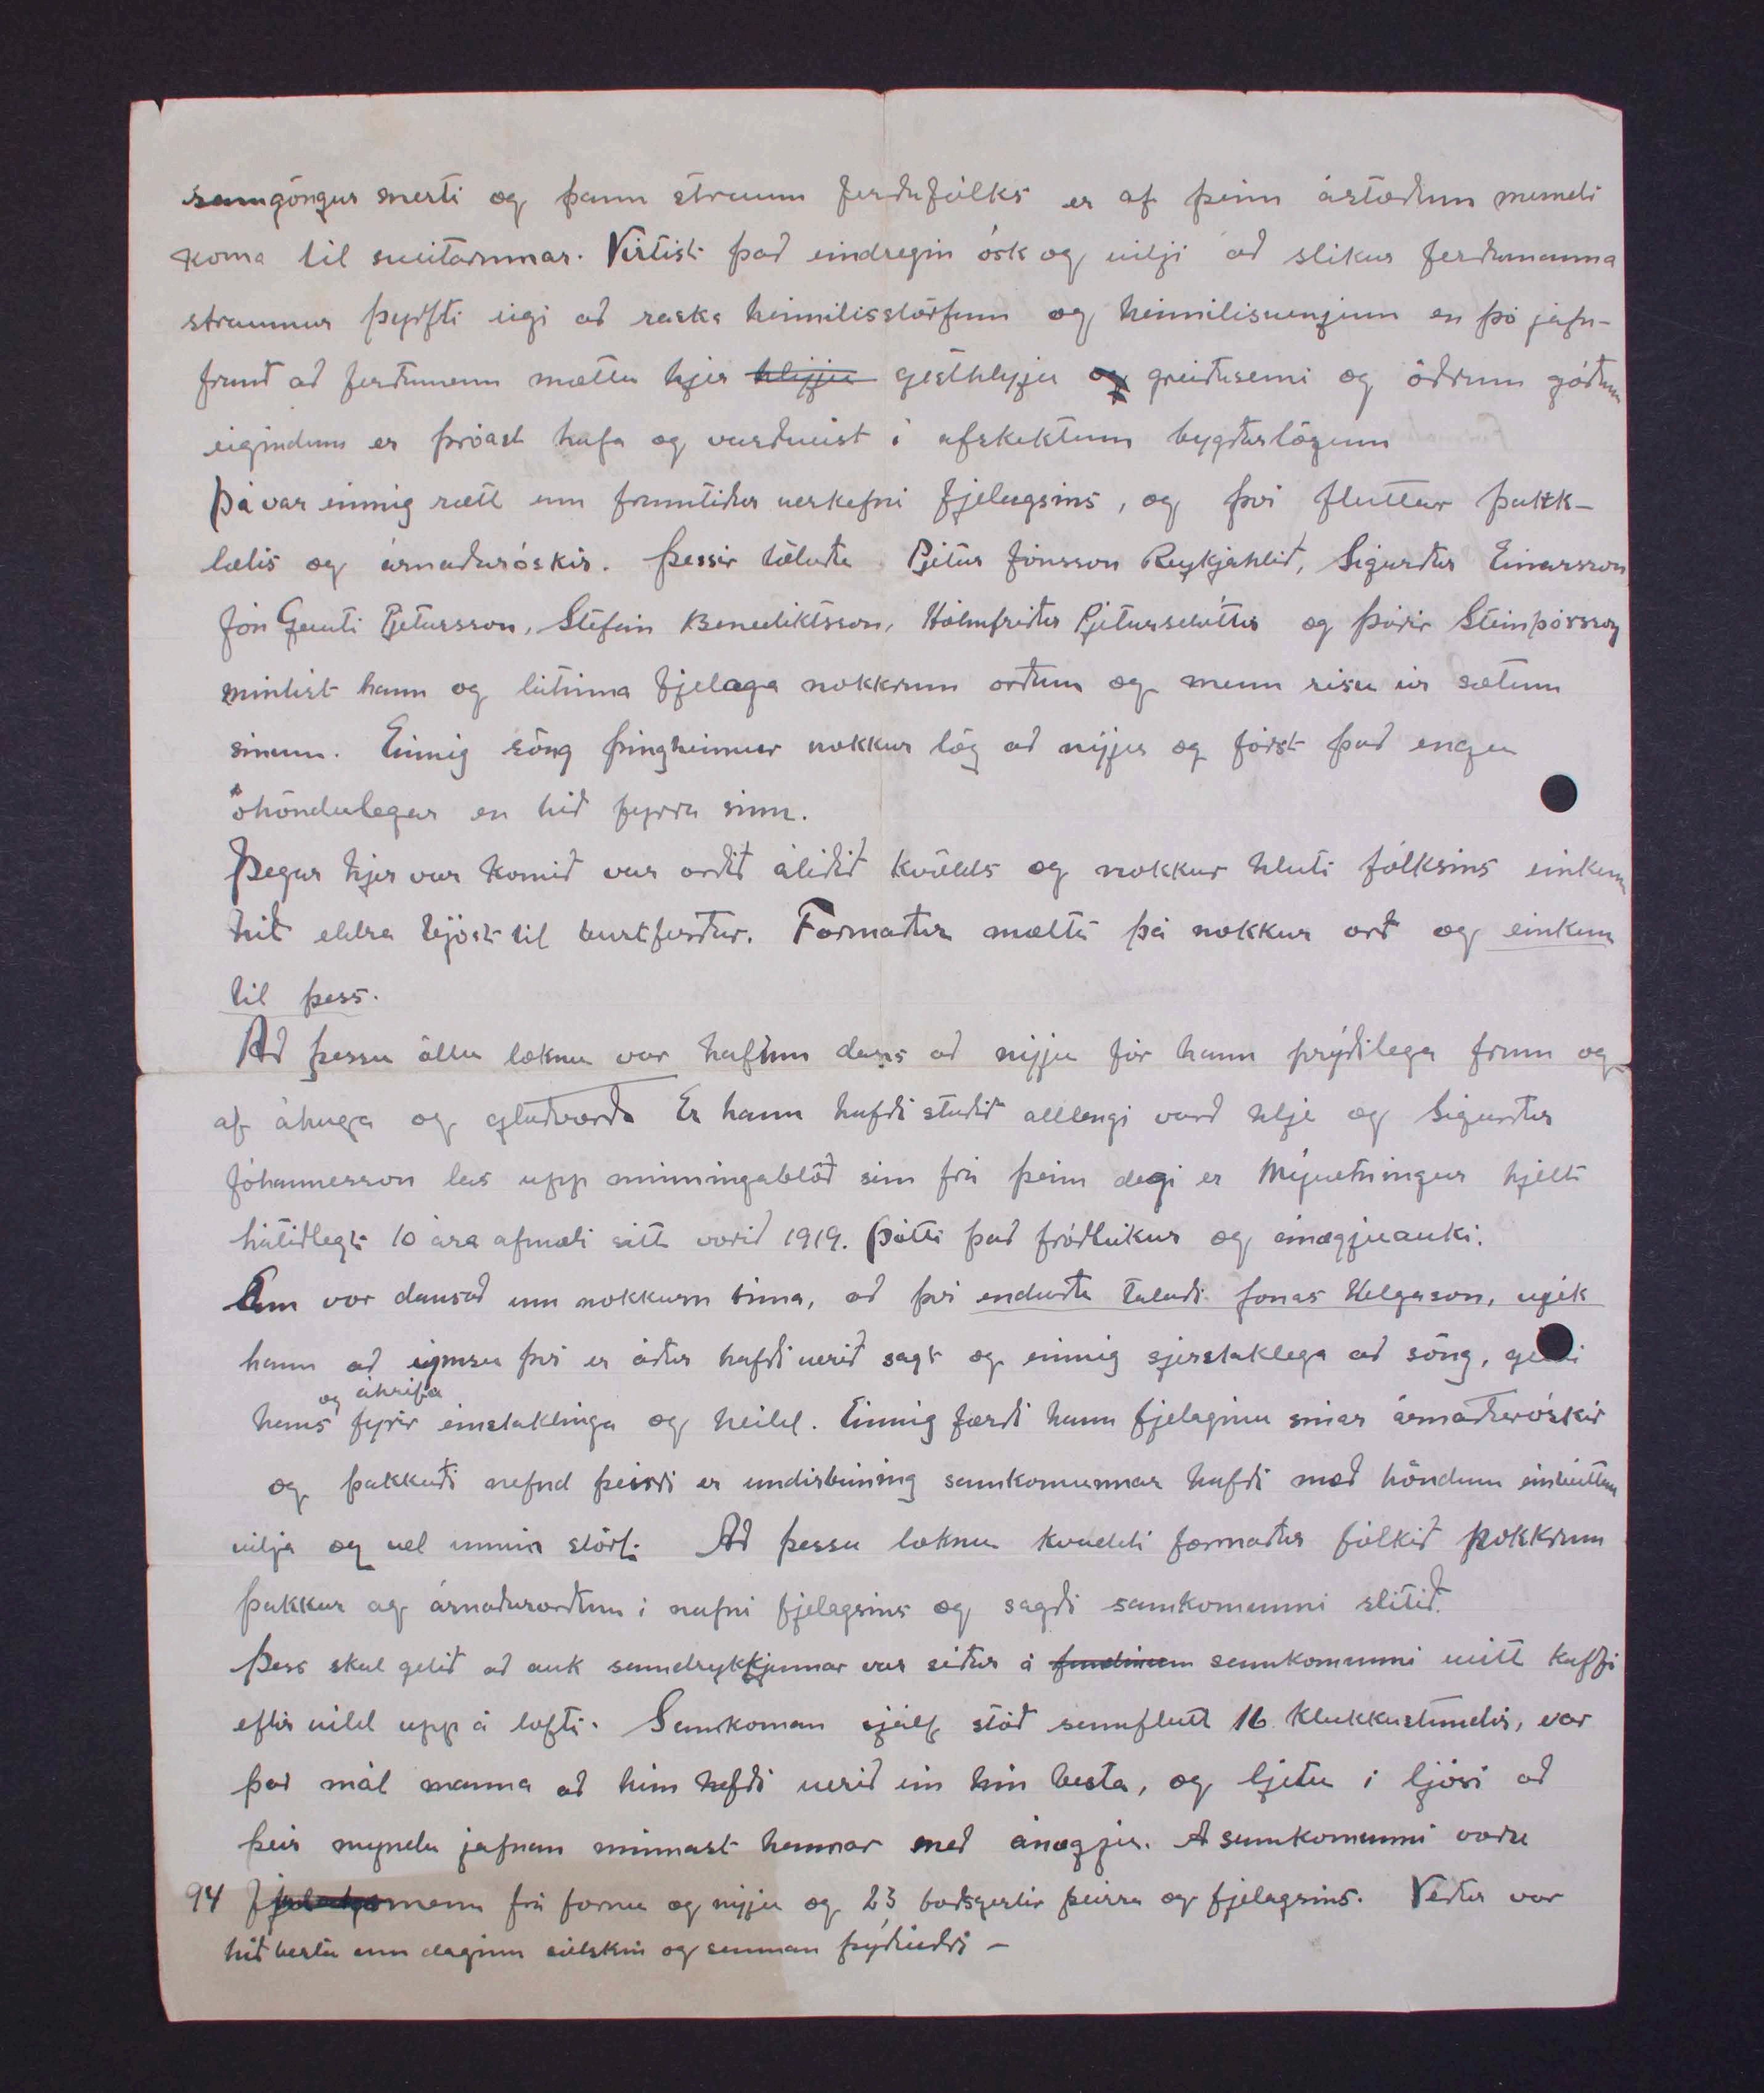 samgöngur snerti og þann straum ferðafólks er af þeim ástæðum mundi
koma til sveitarinnar. Virtist það eindregin ósk og vilji að slíkur ferðamanna
straumur þyrfti eigi að raska heimilisstörfum og heimilisvenjum en þó jafn-
framt að ferðamenn mættu hjer hlýju gesthlýju og greiðasemi og öðrum góðum
eigindum er þróast hafa og varðveist í afskektum bygðarlögum
Þá var einnig rætt um framtíðar verkefni fjelagsins, og því fluttar þakk-
lætis og árnaðaróskir. Þessir töluðu Pjetur Jónsson Reykjahlíð, Sigurður Einarsson
Jón Gauti Pjetursson, Stefán Benediktsson, Hólmfríður Pjetursdóttir og Þórir Steinþórsson
mintist hann og látinna fjelaga nokkrum orðum og menn risu úr sætum
sínum. Einnig söng þingheimur nokkur lög að nýju og fórst það engu
óhöndulegar en hið fyrra sinn.
Þegar hjer var komið var orðið áliðið kvölds og nokkur hluti fólksins einkum
hið eldra bjóst til burtferðar. Formaður mælti þá nokkur orð og einkum
til þess.
Að þessu öllu loknu var hafinn dans að nýju fór hann prýðilega fram og
af áhuga og glaðværð. Er hann hafði staðið alllengi varð hlje og Sigurður
Jóhannesson las upp minningablöð sín frá þeim degi er Mývetningur hjelt
hátíðlegt 10 ára afmæli sitt vorið 1919. Þótti það fróðleikur og ánægjuauki.
Enn var dansað um nokkurn tíma, að því enduðu talaði Jónas Helgason, vjek
hann að ýmsu því er áður hafði verið sagt og einnig sjerstaklega að söng, gildi
og áhrifa
hans fyrir einstaklinga og heild. Einnig færði hann fjelaginu sínar árnaðaróskir
og þakkaði nefnd þeirri er undirbúning samkomunnar hafði með höndum einbeittan
vilja og vel unnin störf. Að þessu loknu kvaddi formaður fólkið nokkrum
þakkar og árnaðarorðum í nafni fjelagsins og sagði samkomunni slitið.
Þess skal getið að auk samdrykkjunnar var síðar á fundinum samkomunni veitt kaffi
eftir vild upp á lofti. Samkoman sjálf stóð samfleytt 16 klukkustundir, var
það mál manna að hún hefði verið ein hin besta, og ljetu í ljósi að
þeir myndu jafnan minnast hennar með ánægju. Á samkomunni voru
94 fjelagsmenn frá fornu og nýju og 23 boðsgestir þeirra og fjelagsins. Veður var
hið besta um daginn sólskin og sunnan þýðvidri –